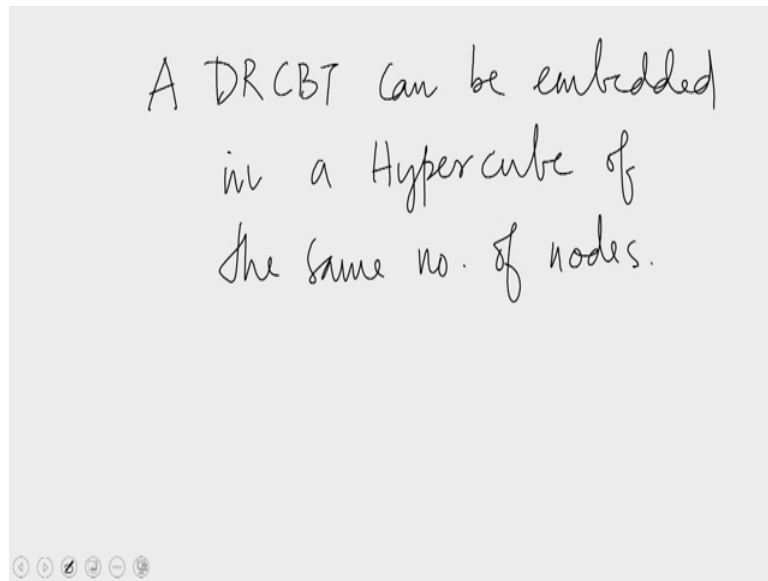 A DRCBT can be embedded
in a Hypercube of
the same no. of nodes.